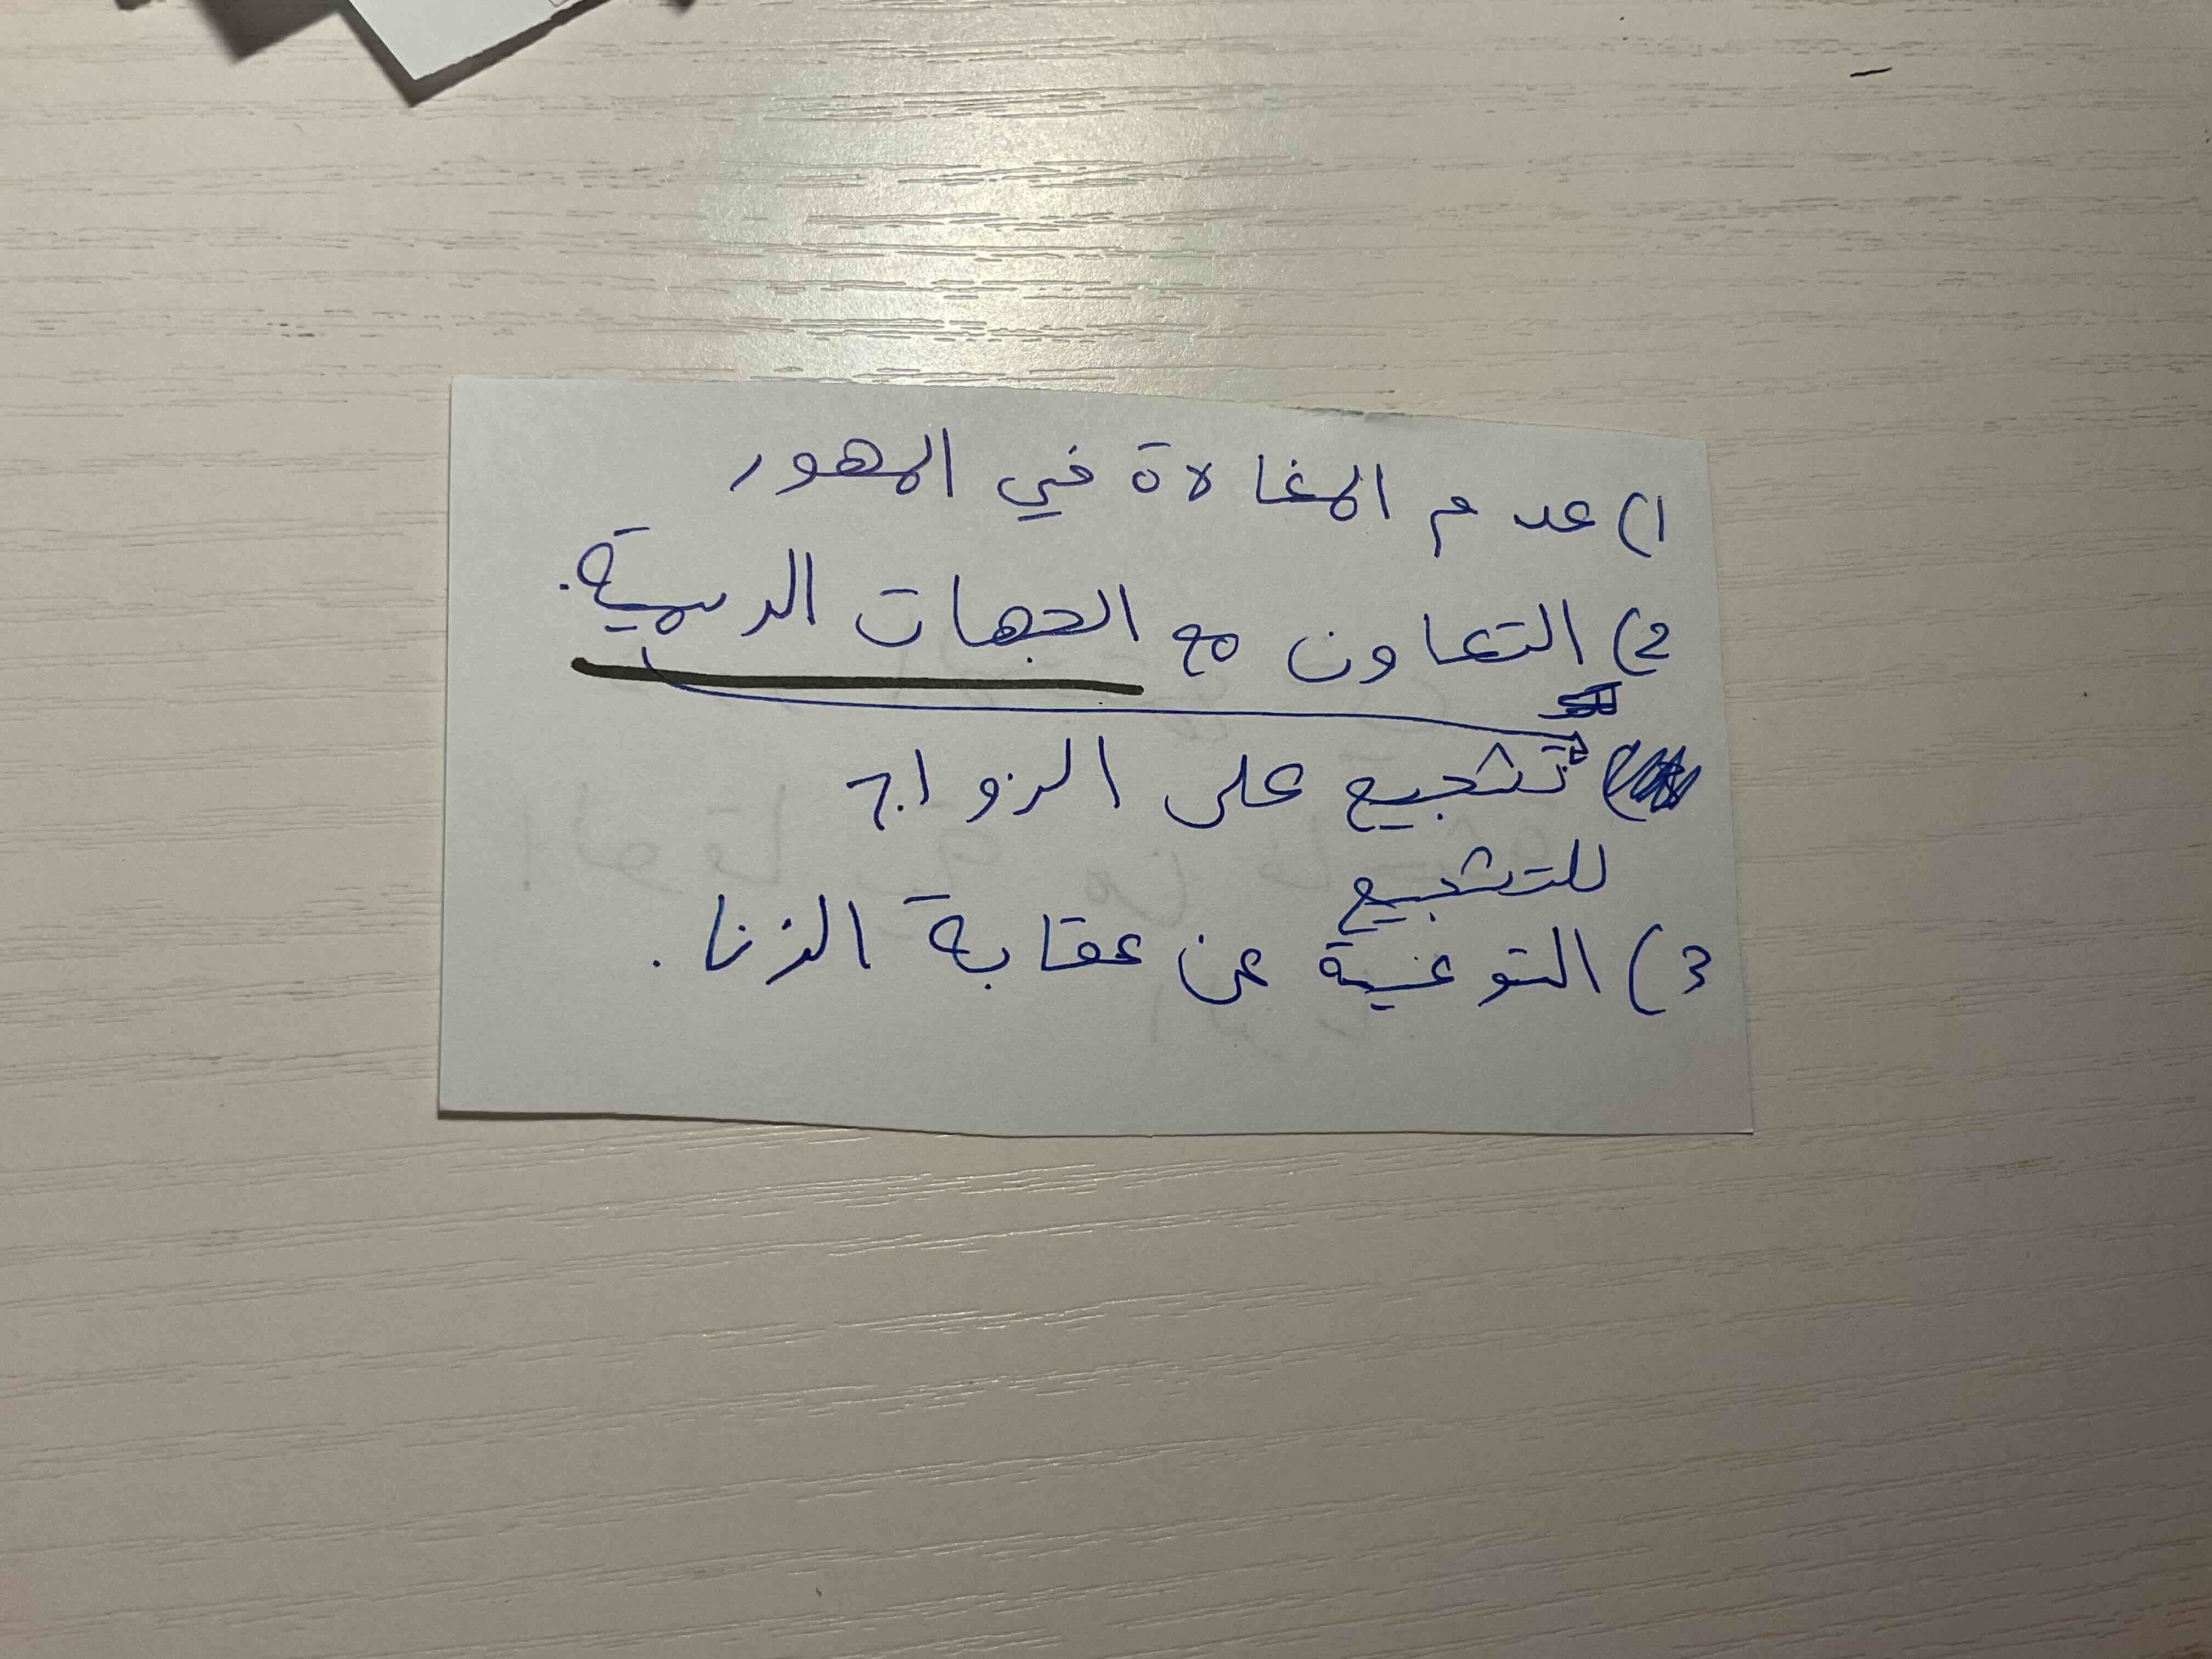 1) عدم المغالاة في المهور
2) التعاون مع الجهات الرسمية.
تشجيع على الزواج
للتشجيع
3) التوعية عن عقابة الزنا.